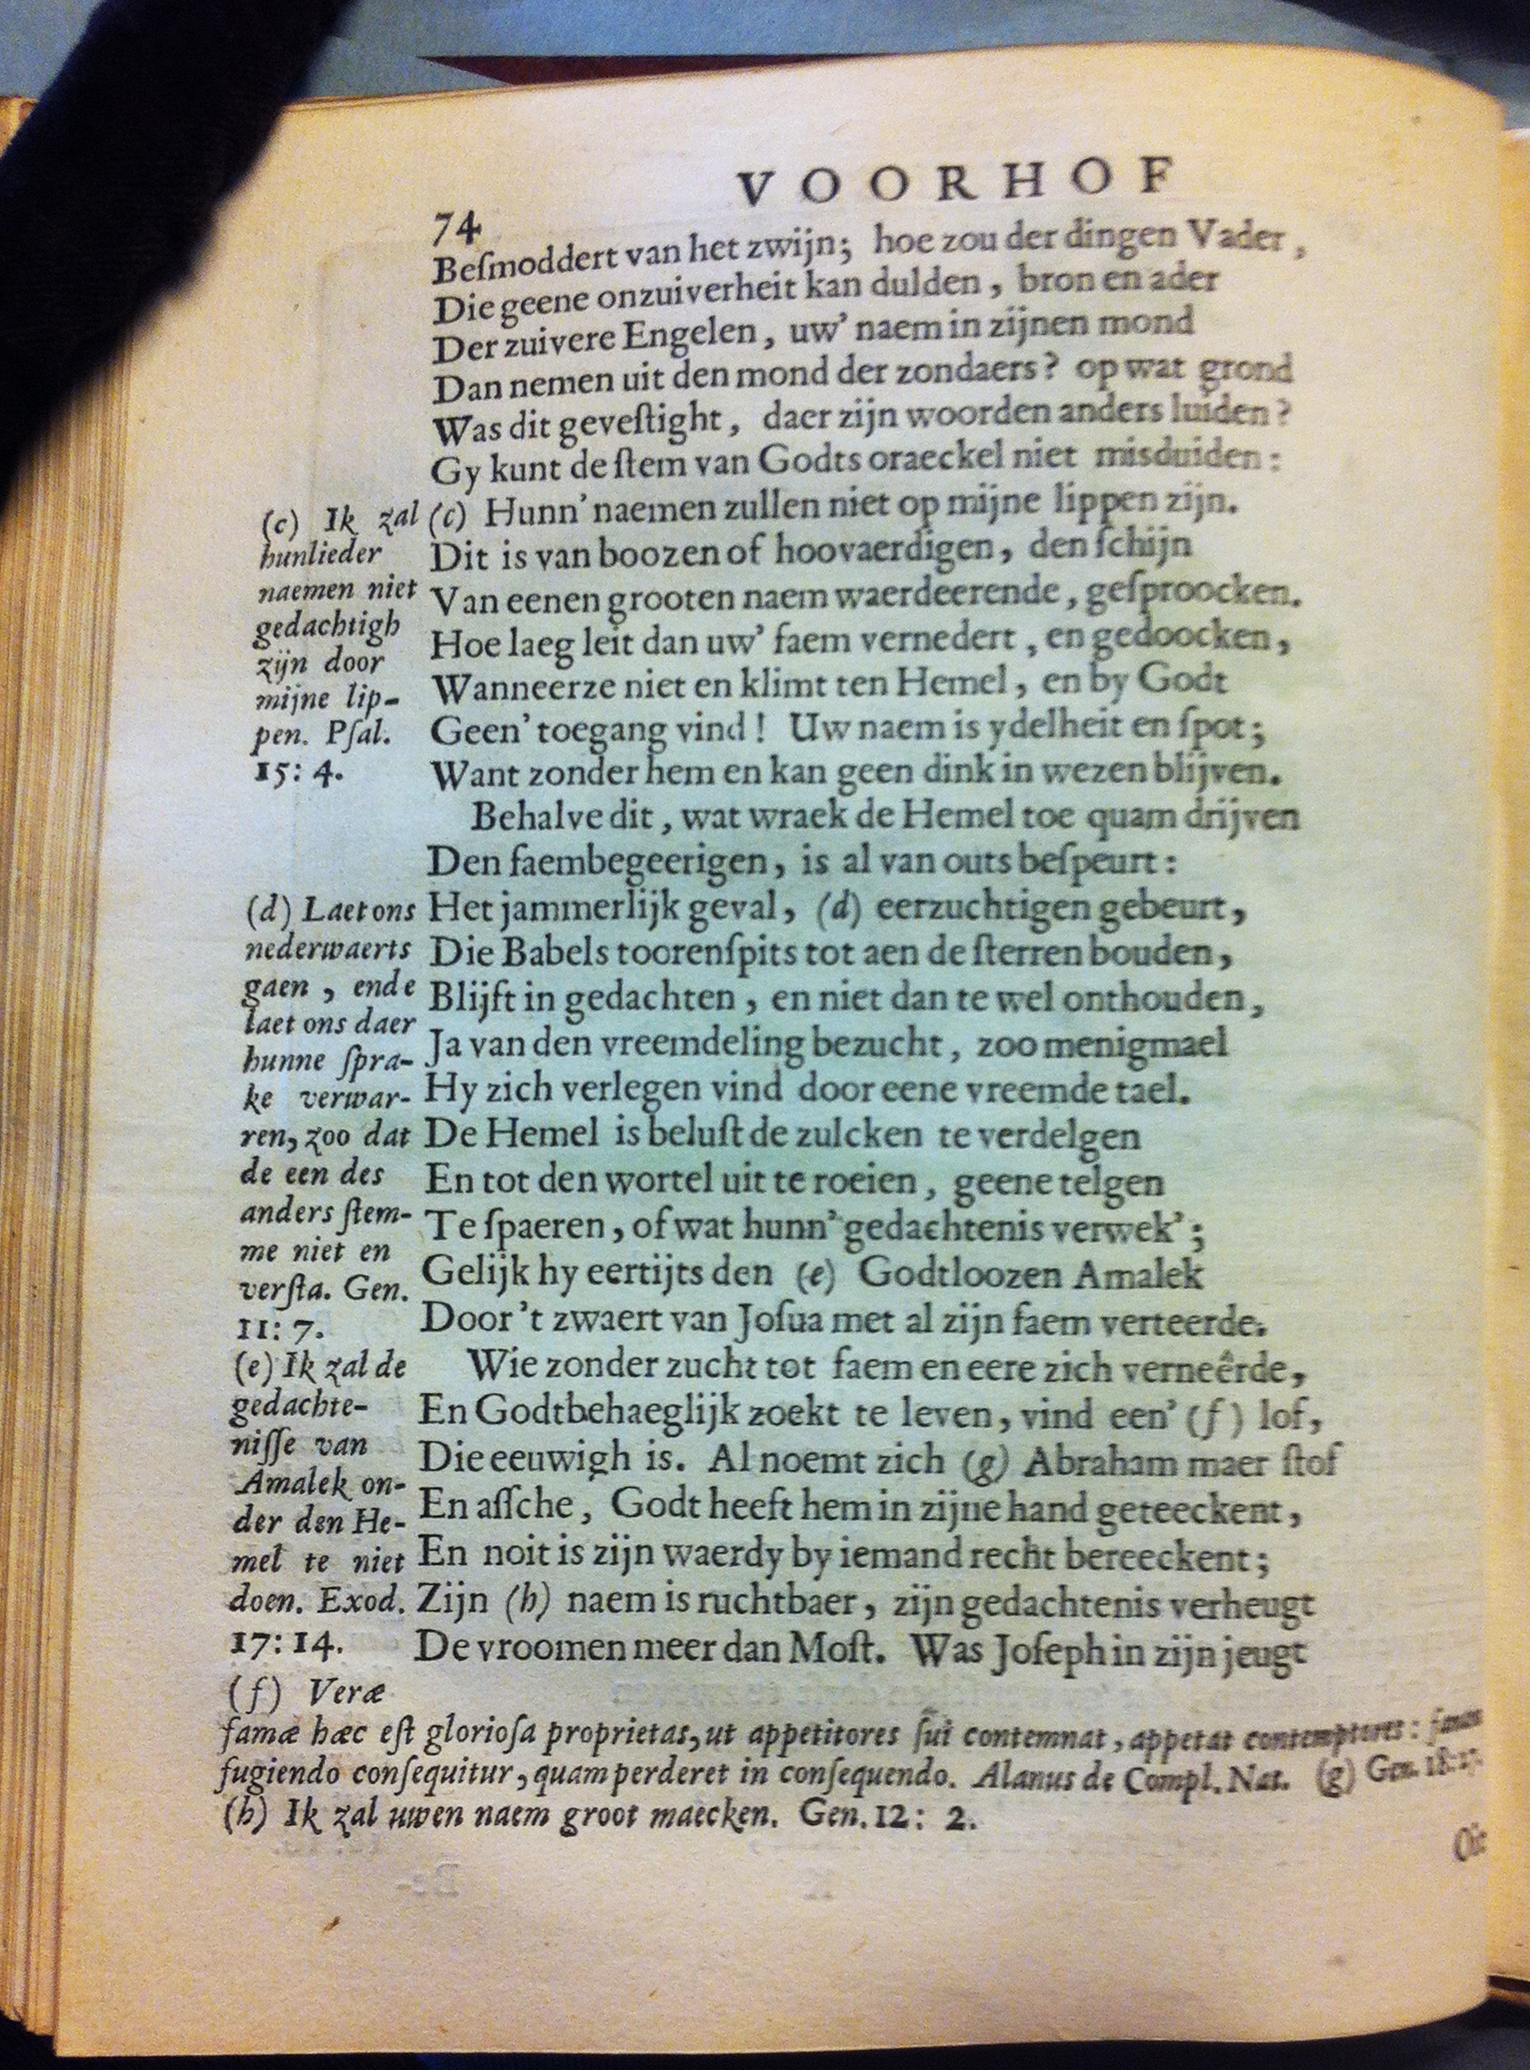 VOORHOF
74
Beſmoddert van het zwijn; hoe zou der dingen Vader,
Die geene onzuiverheit kan dulden, bron en ader
Der zuivere Engelen, uw' naem in zijnen mond
Dan nemen uit den mond der zondaers? op wat grond
Was dit geveſtight, daer zijn woorden anders luiden?
Gy kunt de ſtem van Godts oraeckel niet misduiden:
(c) Hunn' naemen zullen niet op mijne lippen zijn.
Dit is van boozen of hoovaerdigen, den ſchijn
Van eenen grooten naem waerdeerende, geſproocken.
Hoe laeg leit dan uw' faem vernedert, en gedoocken,
Wanneerze niet en klimt ten Hemel, en by Godt
Geen' toegang vind! Uw naem is ydelheit en ſpot;
Want zonder hem en kan geen dink in wezen blijven.
Behalve dit, wat wraek de Hemel toe quam drijven
Den faembegeerigen, is al van outs beſpeurt:
Het jammerlijk geval, (d) eerzuchtigen gebeurt,
Die Babels toorenſpits tot aen de ſterren bouden,
Blijft in gedachten, en niet dan te wel onthouden,
Ja van den vreemdeling bezucht, zoo menigmael
Hy zich verlegen vind door eene vreemde tael.
De Hemel is beluſt de zulcken te verdelgen
En tot den wortel uit te roeien, geene telgen
Te ſpaeren, of wat hunn' gedachtenis verwek';
Gelijk hy eertijts den (e) Godtloozen Amalek
Door 't zwaert van Joſua met al zijn faem verteerde.
Wie zonder zucht tot faem en eere zich verneêrde,
En Godtbehaeglijk zoekt te leven, vind een' (f) lof,
Die eeuwigh is. Al noemt zich (g) Abraham maer ſtof
En aſſche, Godt heeft hem in zijne hand geteeckent,
En noit is zijn waerdy by iemand recht bereeckent;
Zijn (h) naem is ruchtbaer, zijn gedachtenis verheugt
De vroomen meer dan Moſt. Was Joſeph in zijn jeugt
(c) Ik zal
hunlieder
naemen niet
gedachtigh
zijn door
mijne lip-
pen. Pſal.
15: 4.
(d) Laet ons
nederwaerts
gaen, ende
laet ons daer
hunne ſpra-
ke verwar-
ren, zoo dat
de een des
anders ſtem-
me niet en
verſta. Gen.
11: 7.
(e) Ik zal de
gedachte-
niſſe van
Amalek on-
der den He-
mel te niet
doen. Exod.
17: 14.
(f) Veræ
famæ hæc eſt glorioſa proprietas, ut appetitores ſui contemnat, appetat contemptores:
fugiendo conſequitur, quam perderet in conſequendo. Alanus de Compl. Nat. (g) Gen. 18:
(h) Ik zal uwen naem groot maecken. Gen. 12: 2.